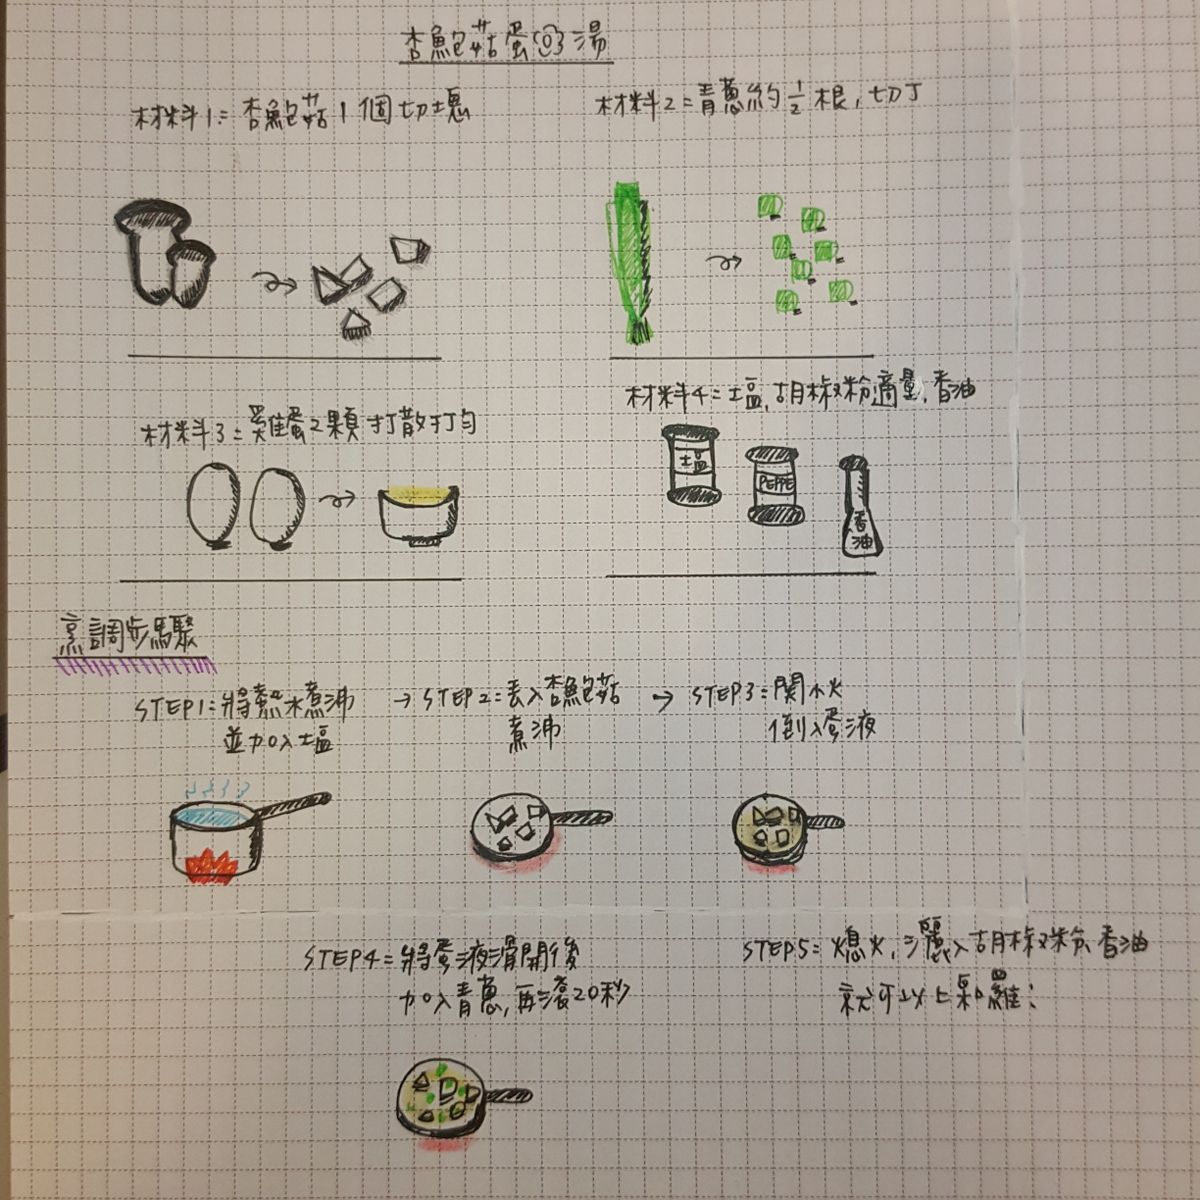 杏鮑菇蛋⓪湯
材料1=杏鮑菇1個切塊
材料2=青蔥約1/2根,切丁
材料3=雞蛋2顆打散打勻
材料4=塩,胡椒粉適量,香油
塩
PEPPE
香油
烹調步驟
STEP1:將熱水煮沸
並加入塩
→STEP2=丟入杏鮑菇
煮沸
→STEP3=關小火
倒入蛋液
STEP4=將蛋液滑開後
加入青蔥,再滾20秒
STEP5=熄火,灑入胡椒粉、香油
就可以上桌囉!